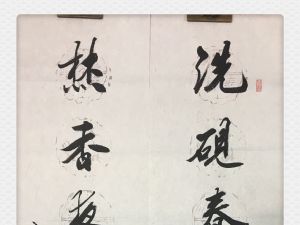 洗硯春
焚香夜